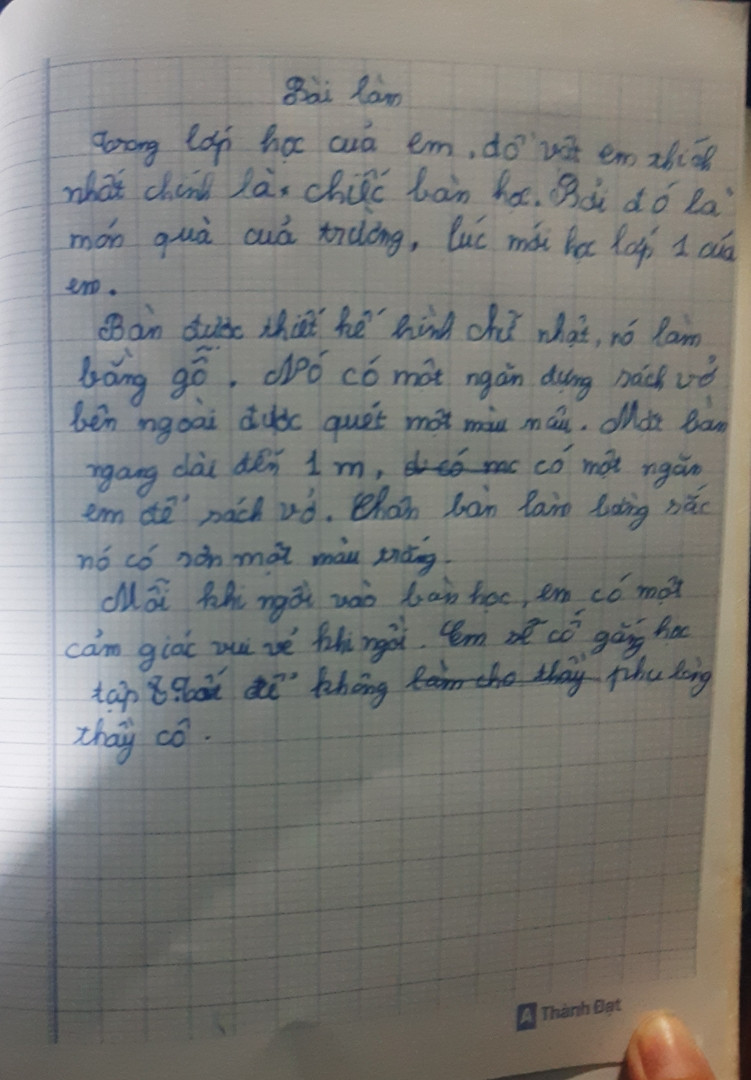 Bài làm
Trong lớp học của em, đồ vật em thích
nhất chính là chiếc bàn học. Bởi đó là
món quà cuả trường, lúc mới học lớp 1 của
em.
Bàn được thiết kế hình chữ nhật, nó làm
bằng gỗ. Nó có một ngăn đựng sách vở
bên ngoài được quét một màu nâu. Mặt bàn
ngang dài đến 1 m, có một ngăn
em để sách vở. Chân bàn làm bằng sắc
nó có sơn một màu trắng.
Mỗi khi ngồi vào bàn học, em có một
cảm giác vui vẻ khi ngồi. Em sẽ cố gắng học
tập để không làm cho thầy phụ lòng
thầy cô.
Thành Đạt